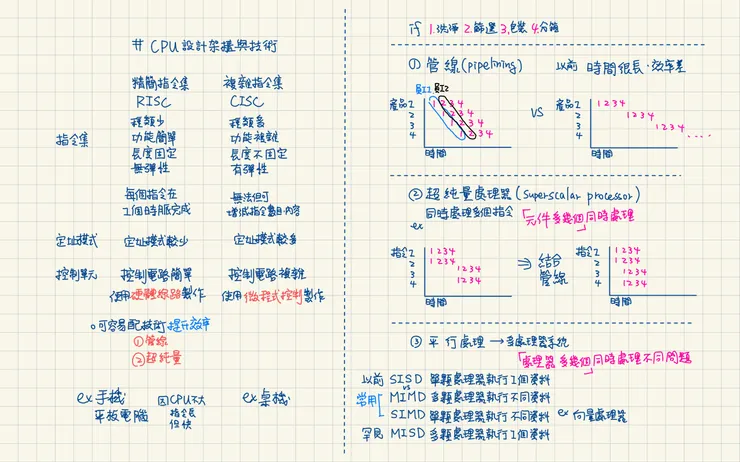 # CPU設計架構與技術
精簡指令集 複雜指令集
RISC CISC
種類少 種類多
指令集 功能簡單 功能複雜
長度固定 長度不固定
無彈性 有彈性
每個指令在 無法但可
1個時脈完成 增減指令數目內容
定址模式 定址模式較少 定址模式較多
控制單元 控制電路簡單 控制電路複雜
使用硬體線路製作 使用微程式控制製作
可容易配技術 提升效率
①管線
②超純量
ex 手機 因CPU不大 ex 桌機
平板電腦 指令長
但快
if 1.洗淨 2.篩選 3.包裝 4.分箱
① 管線(pipelining) 以前 時間很長、效率差
員工1 員工2
產品1 1 2 3 4 VS 產品1 1 2 3 4
2 1 2 3 4 2 1 2 3 4
3 1 2 3 4 3 1 2 3 4
4 1 2 3 4 4 ....
時間 時間
② 超純量處理器(Superscalar processor)
同時處理多個指令
ex 「元件多幾個同時處理」
指令1 1 2 3 4 ⇒ 結合 指令1 1 2 3 4
2 1 2 3 4 管線 2 1 2 3 4
3 1 2 3 4 3 1 2 3 4
4 1 2 3 4 4 1 2 3 4
時間 時間
③ 平行處理 → 多處理器系統
「處理器多幾個同時處理不同問題」
以前 SISD 單顆處理器執行1個資料
vs
常用 MIMD 多顆處理器執行不同資料
SIMD 單顆處理器執行不同資料 ex 向量處理器
罕見 MISD 多顆處理器執行1個資料